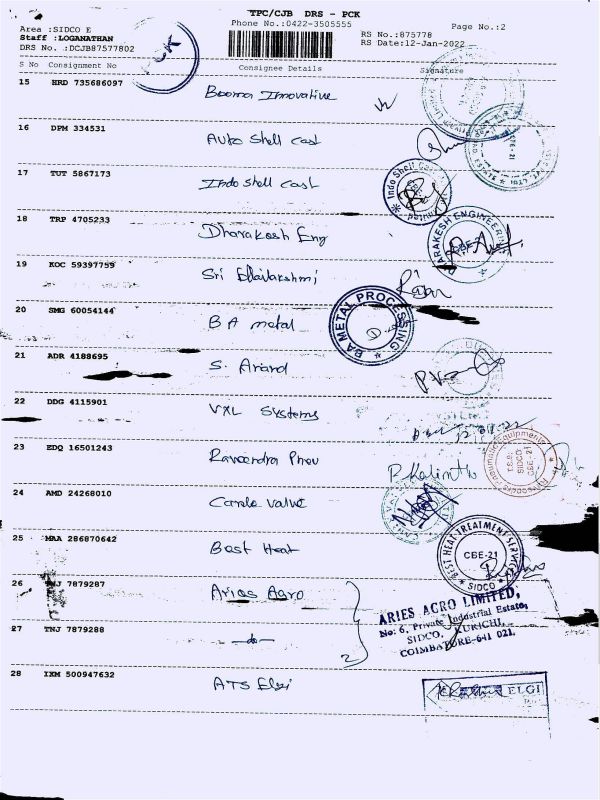 TPC/CJB DRS - PCK
Area :SIDCO E
Phone No.:0422-3505555
Page No.:2
Staff :LOGANATHAN
RS No.:875778
DRS No. :DCJB87577802
RS Date:12-Jan-2022
S No Consignment No Consignee Details Signature
15 HRD 735686097 Booma Innovative
16 DPM 334531 Auto Shell Cast
17 TUT 5867173 Indo Shell Cast
Indo Shell Cast
18 TRP 4705233 Dharakesh Eng
DARAKESH ENGINEERING
19 KOC 59397759 Sri
20 SMG 60054144 BA metal
BA METAL PROCESSING
21 ADR 4188695 S. Anand
22 DDG 4115901 VXL Systems
23 EDQ 16501243
T.S.B.
SIDCO
CBE-21
24 AMD 24268010 valve
25 MAA 286870642 Best Heat
BEST HEAT TREATMENT SERVICES
CBE-21
SIDCO
26 TNJ 7879287 Aries Agro
ARIES AGRO LIMITED,
No: 6, Private Industrial Estate,
SIDCO, KURICHI,
COIMBATORE-641 021.
27 TNJ 7879288 —do—
2
28 IXM 500947632 ATS Elgi
ELGI